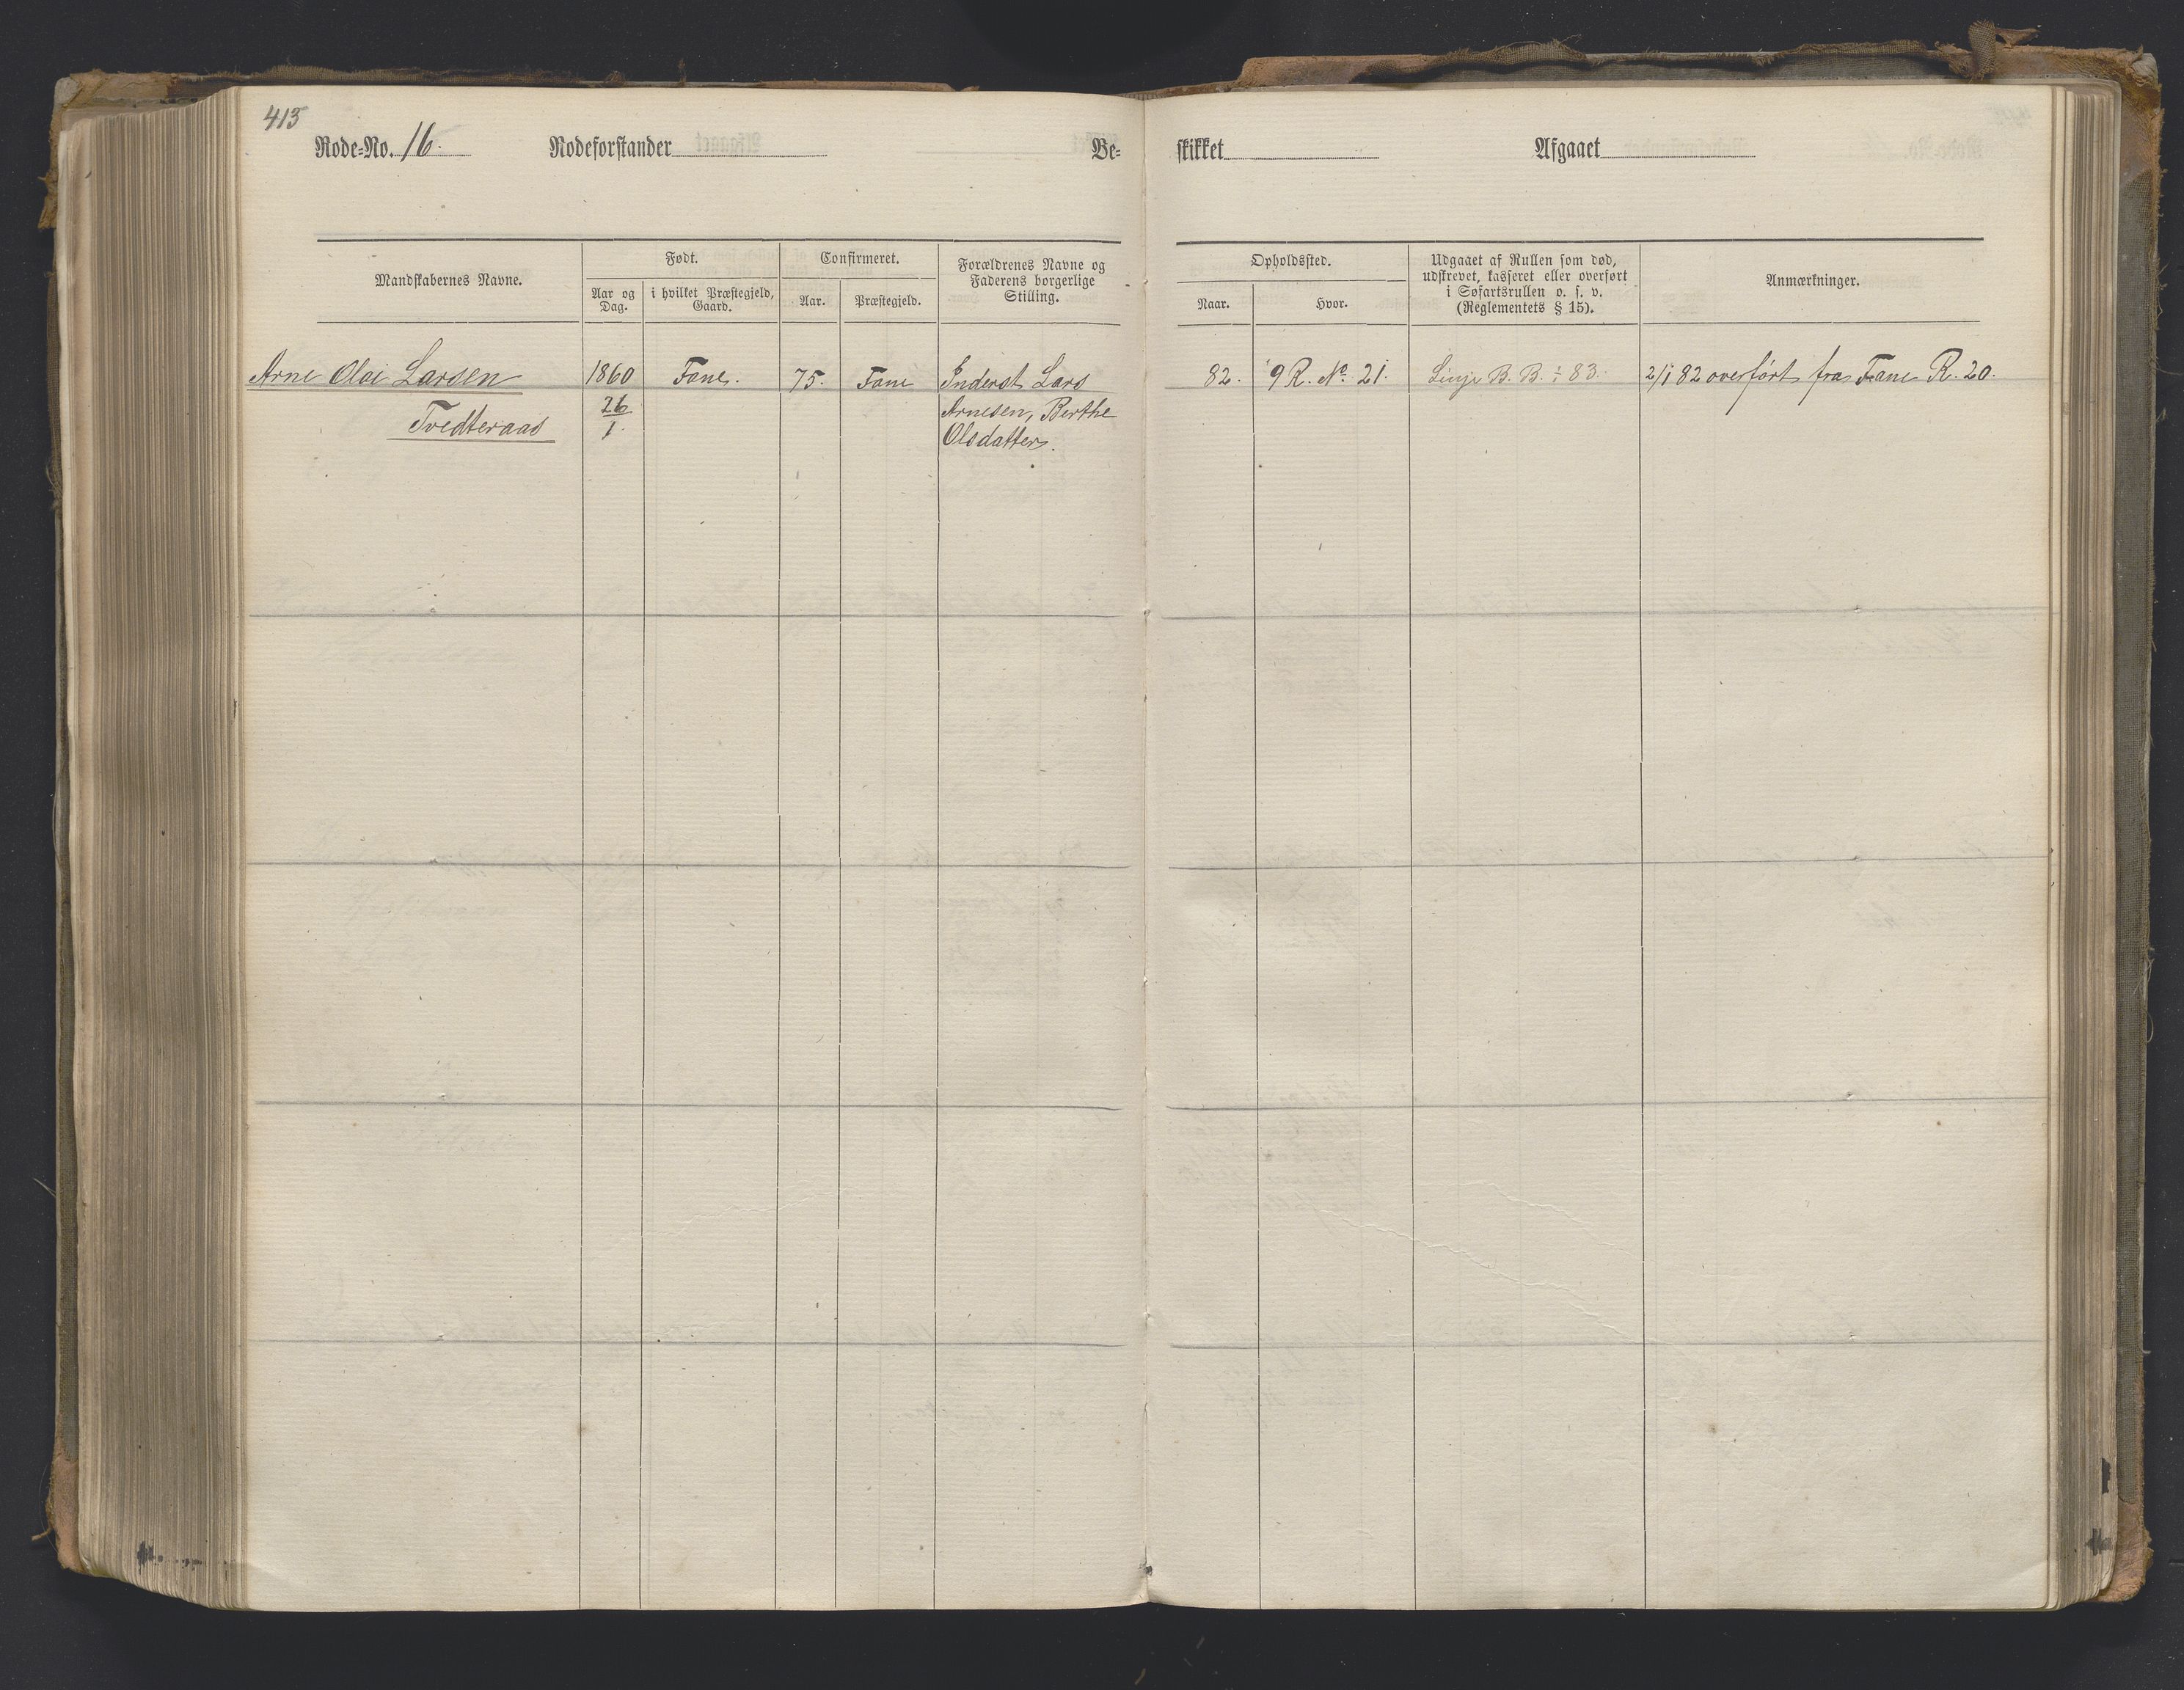 413
Rode-No. 16. Rodeforstander Be-
skikket Afgaaet
Mandskabernes Navne.
Født.
Aar og Dag.
i hvilket Præstegjeld, Gaard.
Confirmeret.
Aar.
Præstegjeld.
Forældrenes Navne og
Faderens borgerlige
Stilling.
Opholdssted.
Naar.
Hvor.
Udgaaet af Rullen som død,
udskrevet, kasseret eller overført
i Søfartsrullen o. s. v.
(Reglementets § 15).
Anmærkninger.
Arne Olai Larsen 1860 Fane. 75. Fane Inderst Lars 82. 9 R. No. 21. Linje B. B. ÷ 83. 2/1 82 overført fra Fane R. 20.
Tvedteraas 26/1. Arnesen, Berthe
Olsdatter.